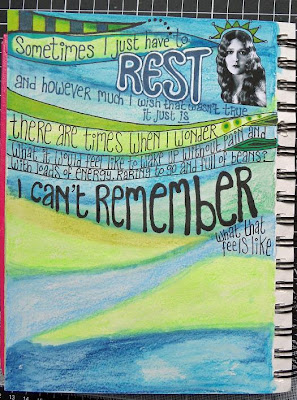 Sometimes I just have to
REST
and however much I wish that wasn't true
it just is
there are times when I wonder
what it would feel like to wake up without pain and
with loads of energy, raring to go and full of beans?
I can't REMEMBER
what that
feels like